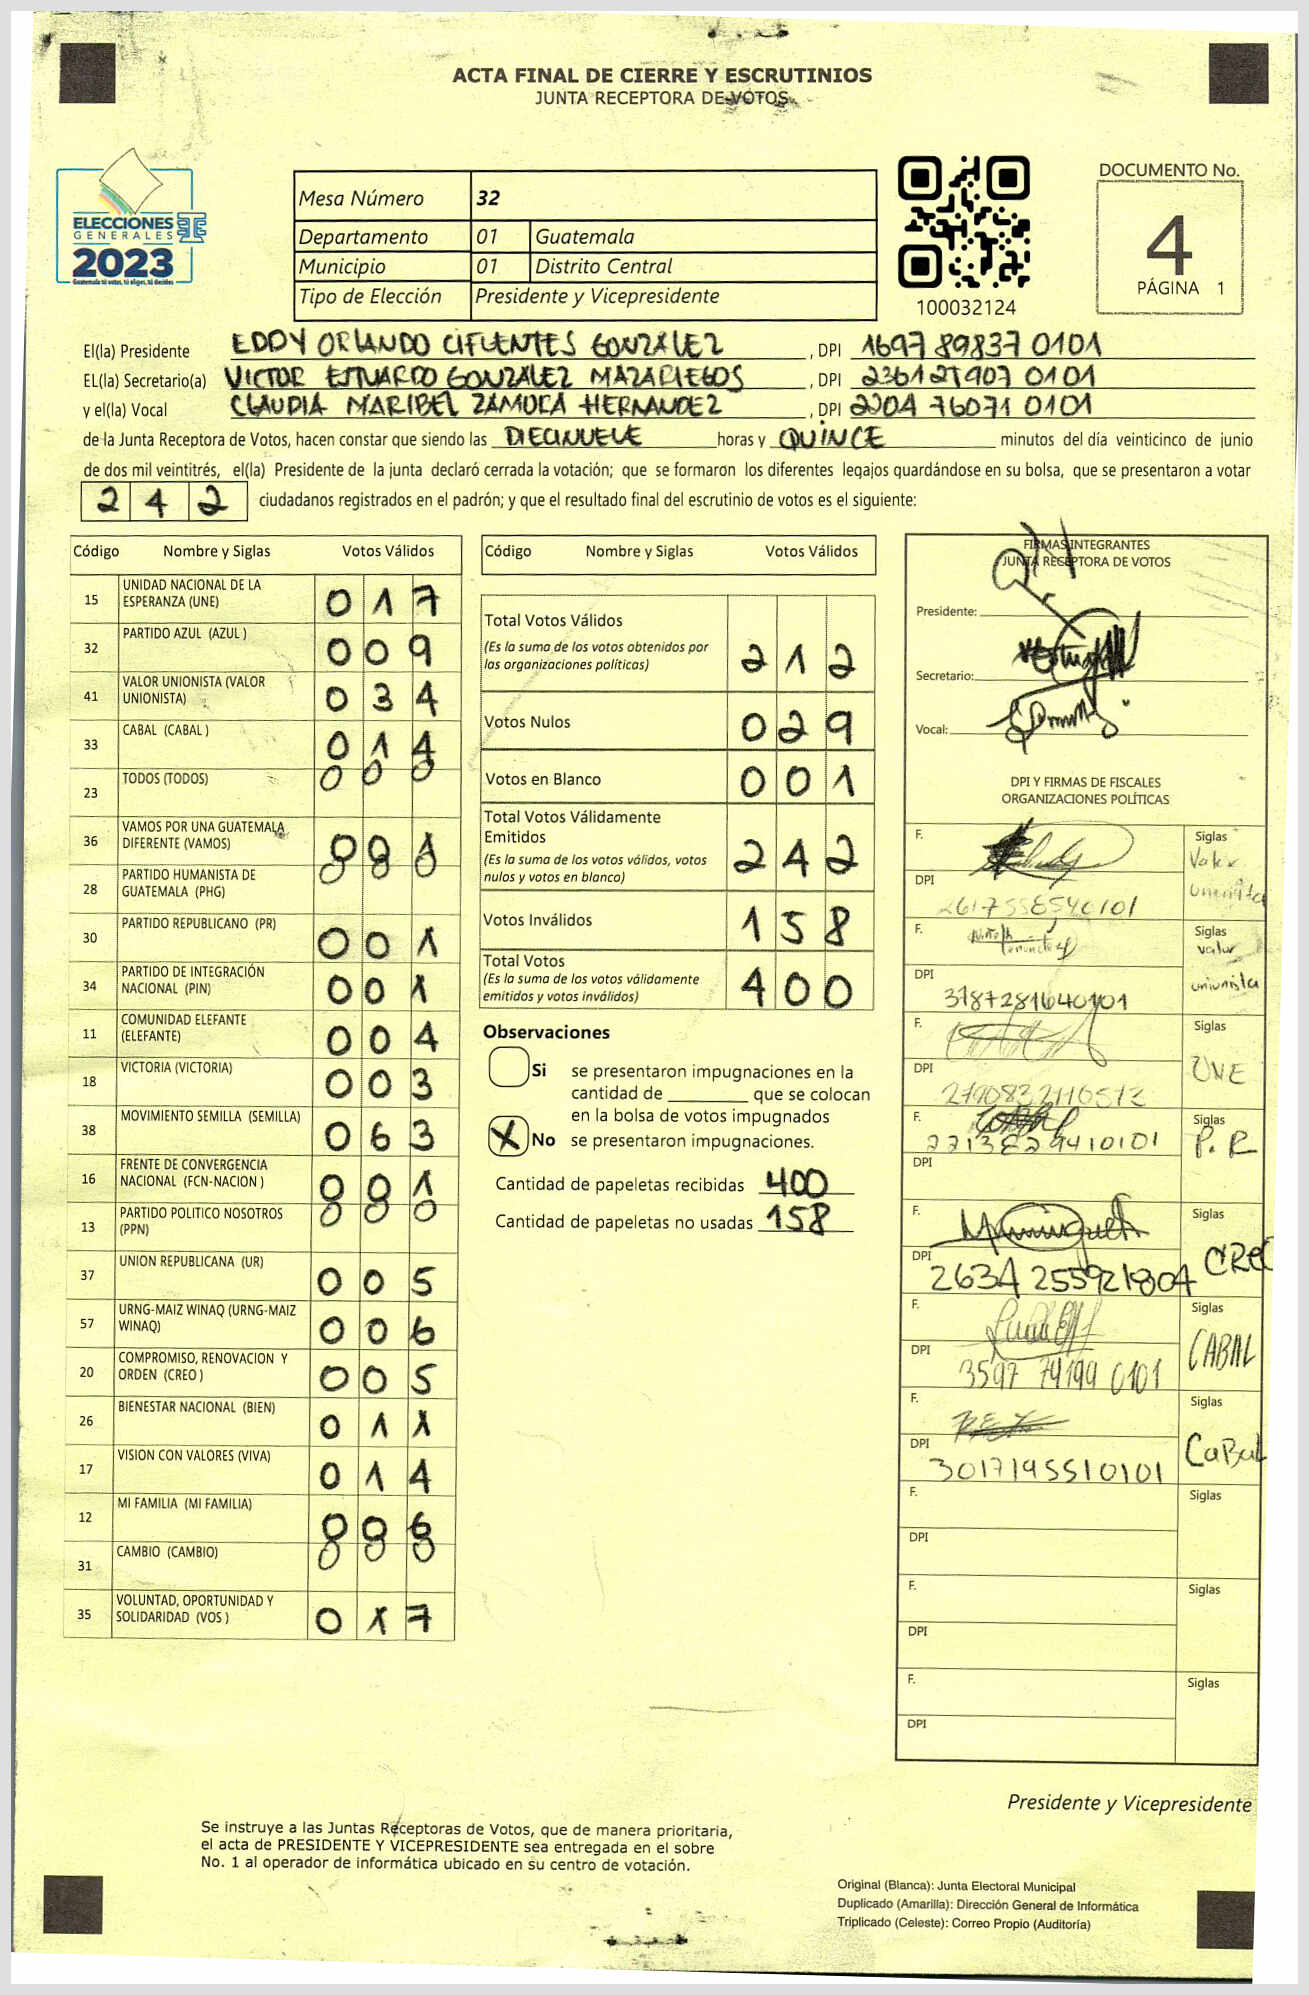 ACTA FINAL DE CIERRE Y ESCRUTINIOS
JUNTA RECEPTORA DE VOTOS
ELECCIONES
GENERALES
2023
Guatemala tú votas, tú eliges, tú decides
Mesa Número 32
Departamento 01 Guatemala
Municipio 01 Distrito Central
Tipo de Elección Presidente y Vicepresidente
100032124
DOCUMENTO No.
4
PÁGINA 1
El(la) Presidente EDDY ORLANDO CIFUENTES GONZALEZ, DPI 1697 89837 0101
EL(la) Secretario(a) VICTOR ESTUARDO GONZALEZ MAZARIEGOS, DPI 0101
y el(la) Vocal CLAUDIA MARIBEL ZAMORA HERNANDEZ, DPI 2204 76071 0101
de la Junta Receptora de Votos, hacen constar que siendo las DIECINUEVE horas y QUINCE minutos del día veinticinco de junio
de dos mil veintitrés, el(la) Presidente de la junta declaró cerrada la votación; que se formaron los diferentes legajos quardándose en su bolsa, que se presentaron a votar
242 ciudadanos registrados en el padrón; y que el resultado final del escrutinio de votos es el siguiente:
Código Nombre y Siglas Votos Válidos
15 UNIDAD NACIONAL DE LA ESPERANZA (UNE) 017
32 PARTIDO AZUL (AZUL ) 009
41 VALOR UNIONISTA (VALOR UNIONISTA) 034
33 CABAL (CABAL ) 014
23 TODOS (TODOS) 000
36 VAMOS POR UNA GUATEMALA DIFERENTE (VAMOS) 001
28 PARTIDO HUMANISTA DE GUATEMALA (PHG) 000
30 PARTIDO REPUBLICANO (PR) 001
34 PARTIDO DE INTEGRACIÓN NACIONAL (PIN) 001
11 COMUNIDAD ELEFANTE (ELEFANTE) 004
18 VICTORIA (VICTORIA) 003
38 MOVIMIENTO SEMILLA (SEMILLA) 063
16 FRENTE DE CONVERGENCIA NACIONAL (FCN-NACION ) 001
13 PARTIDO POLITICO NOSOTROS (PPN) 000
37 UNION REPUBLICANA (UR) 005
57 URNG-MAIZ WINAQ (URNG-MAIZ WINAQ) 006
20 COMPROMISO, RENOVACION Y ORDEN (CREO ) 005
26 BIENESTAR NACIONAL (BIEN) 011
17 VISION CON VALORES (VIVA) 014
12 MI FAMILIA (MI FAMILIA) 006
31 CAMBIO (CAMBIO) 000
35 VOLUNTAD, OPORTUNIDAD Y SOLIDARIDAD (VOS ) 017
Código Nombre y Siglas Votos Válidos
Total Votos Válidos 212
(Es la suma de los votos obtenidos por
las organizaciones políticas)
Votos Nulos 029
Votos en Blanco 001
Total Votos Válidamente Emitidos 242
(Es la suma de los votos válidos, votos
nulos y votos en blanco)
Votos Inválidos 158
Total Votos 400
(Es la suma de los votos válidamente
emitidos y votos inválidos)
Observaciones
Si se presentaron impugnaciones en la
cantidad de ________ que se colocan
en la bolsa de votos impugnados
X No se presentaron impugnaciones.
Cantidad de papeletas recibidas 400
Cantidad de papeletas no usadas 158
FIRMAS INTEGRANTES
JUNTA RECEPTORA DE VOTOS
Presidente:
Secretario:
Vocal:
DPI Y FIRMAS DE FISCALES
ORGANIZACIONES POLÍTICAS
F. Siglas Valor Unionista
DPI 2617558540101
F. Siglas valor unionista
DPI 3187281640101
F. Siglas UNE
DPI
F. Siglas P.R
DPI
F. Siglas CREO
DPI 2634 255921804
F. Siglas CABAL
DPI 3597 74199 0101
F. Siglas CaBaL
DPI 3017195510101
F. Siglas
DPI
F. Siglas
DPI
F. Siglas
DPI
Presidente y Vicepresidente
Se instruye a las Juntas Receptoras de Votos, que de manera prioritaria,
el acta de PRESIDENTE Y VICEPRESIDENTE sea entregada en el sobre
No. 1 al operador de informática ubicado en su centro de votación.
Original (Blanca): Junta Electoral Municipal
Duplicado (Amarilla): Dirección General de Informática
Triplicado (Celeste): Correo Propio (Auditoría)